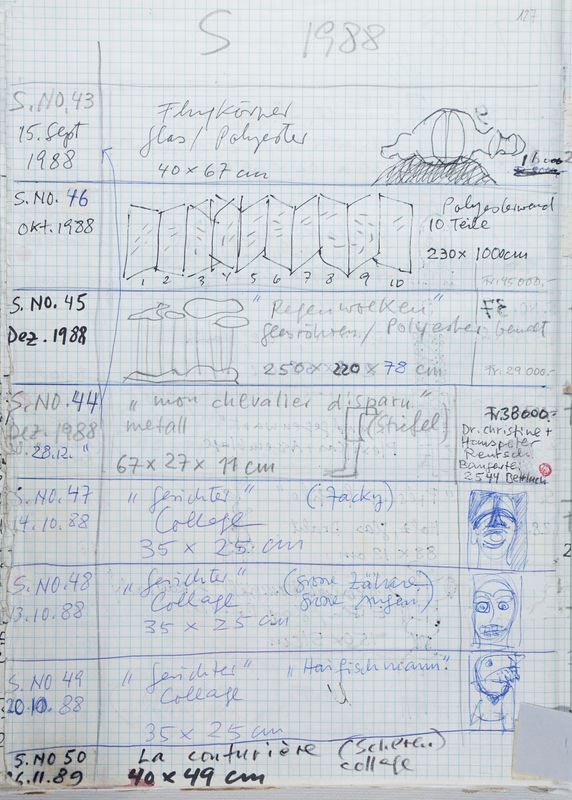 127
S 1988
S.NO.43
15. Sept
1988
Flugkörper
glas / Polyester
40 x 67 cm
S. NO. 46
Okt. 1988
1 2 3 4 5 6 7 8 9 10
Polyesterwand
10 Teile
230 x 1000cm
Fr. 145000.-
S. NO. 45
Dez. 1988
"Regenwolken" 37
glasröhren / Polyester bemalt
250 x 220 x 78 cm
Fr. 29000.-
S. NO. 44
Dez. 1988
28.12. "
"mon chevalier disparu"
metall (Stiefel)
67 x 27 x 11 cm
Fr 38000.-
Dr. Christine +
Hanspeter
Rentsch
2544 Bettlach
S. NO. 47
14.10.88
"gesichter"
Collage
35 x 25 cm
(Jacky)
S. NO. 48
13.10.88
"gesichter"
Collage
35 x 25 cm
(grosse Zähne
grosse Augen)
S. NO 49
20.10. 88
"gesichter" "Haifischmann"
Collage
35 x 25 cm
S. NO 50
11.89
La couturière (Scheren)
40 x 49 cm collage